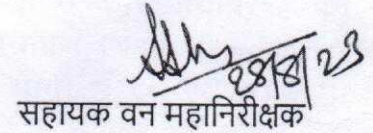 28/8/23
सहायक वन महानिरीक्षक